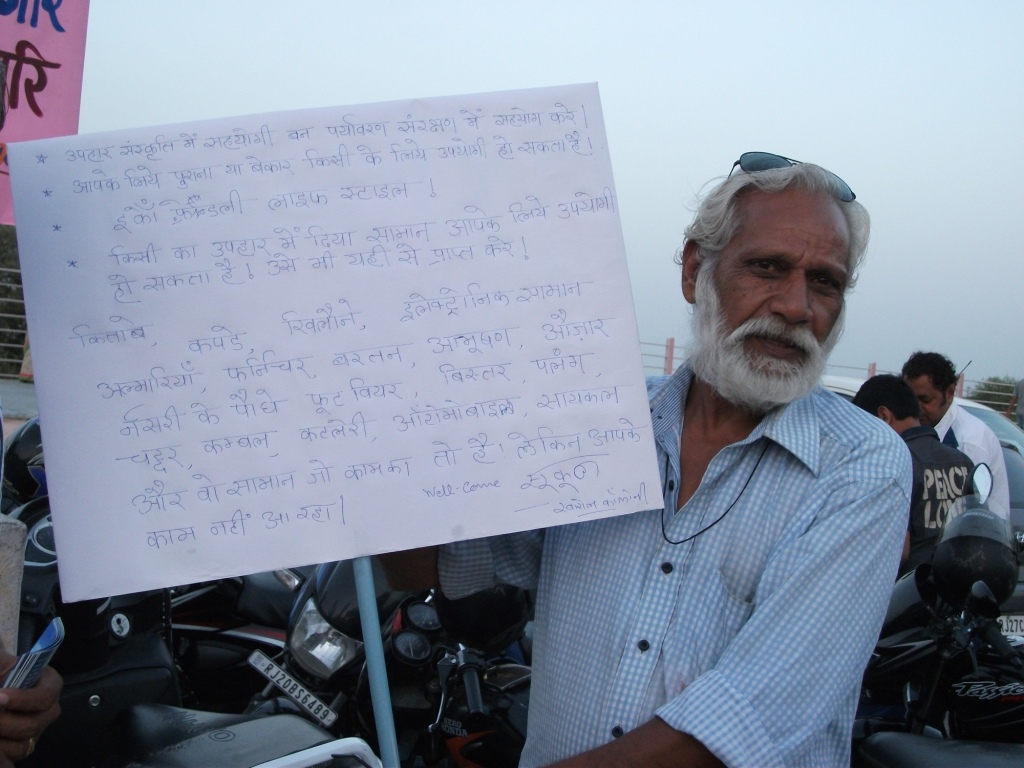 * उपहार संस्कृति में सहयोगी बन पर्यावरण संरक्षण में सहयोग करे!
* आपके लिये पुराना या बेकार किसी के लिये उपयोगी हो सकता है!
* इको फ़्रेन्डली लाइफ स्टाइल!
* किसी का उपहार में दिया सामान आपके लिये उपयोगी
हो सकता है! उसे भी यही से प्राप्त करे!
किताबे, कपडे, खिलौने, इलेक्ट्रोनिक सामान
अल्मारियाँ, फर्निचर, बरतन, आभूषण, औज़ार
र्नसरी के पौधे फूटवियर, बिस्तर, पलँग,
चद्दर, कम्बल, कटलेरी, ऑटोमोबाइल, सायकल
और वो सामान जो काम का तो है, लेकिन आपके
काम नहीं आ रहा!
Well-Come
कॉलोनी
RJ20BS6489
HONDA
PEACE
RJ27C
Passion